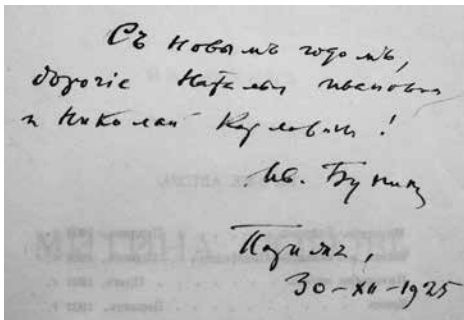 Съ Новымъ годомъ,
дорогіе Наталья Ивановна
и Николай Карловичъ!
Ив. Бунинъ
Парижъ,
30-XII-1925